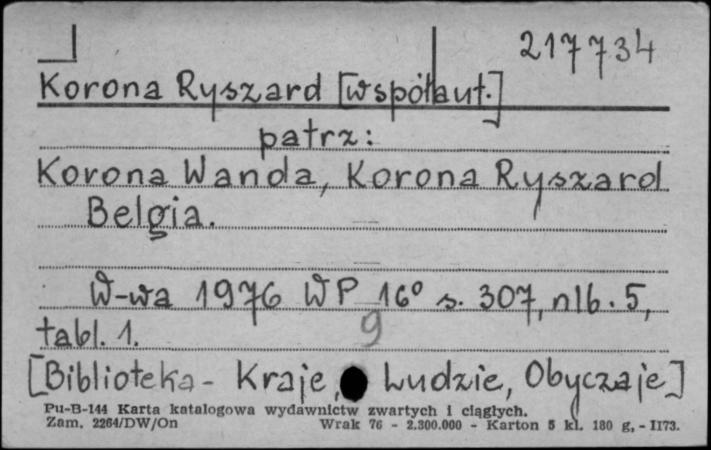 217734
Korona Ryszard [współaut.]
patrz:
Korona Wanda, Korona Ryszard
Belgia.
W-wa 1976 WP 16° s. 307, nlb. 5,
tabl. 1.
9
[Biblioteka - Kraje, Ludzie, Obyczaje]
Pu-B-144 Karta katalogowa wydawnictw zwartych i ciągłych.
Zam. 2264/DW/On Wrak 76 - 2.300.000 - Karton 5 kl. 180 g, - I173.